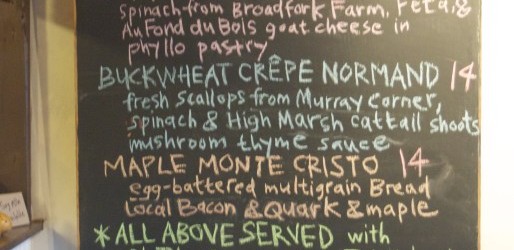 Spinach from Broadfork Farm, Feta, &
Au Fond du Bois goat cheese in
phyllo pastry
BUCKWHEAT CRÊPE NORMAND 14
fresh Scallops from Murray Corner,
Spinach & High Marsh cattail shoots
mushroom thyme sauce
MAPLE MONTE CRISTO 14
egg-battered multigrain Bread
Local Bacon & Quark & maple
*ALL ABOVE SERVED with